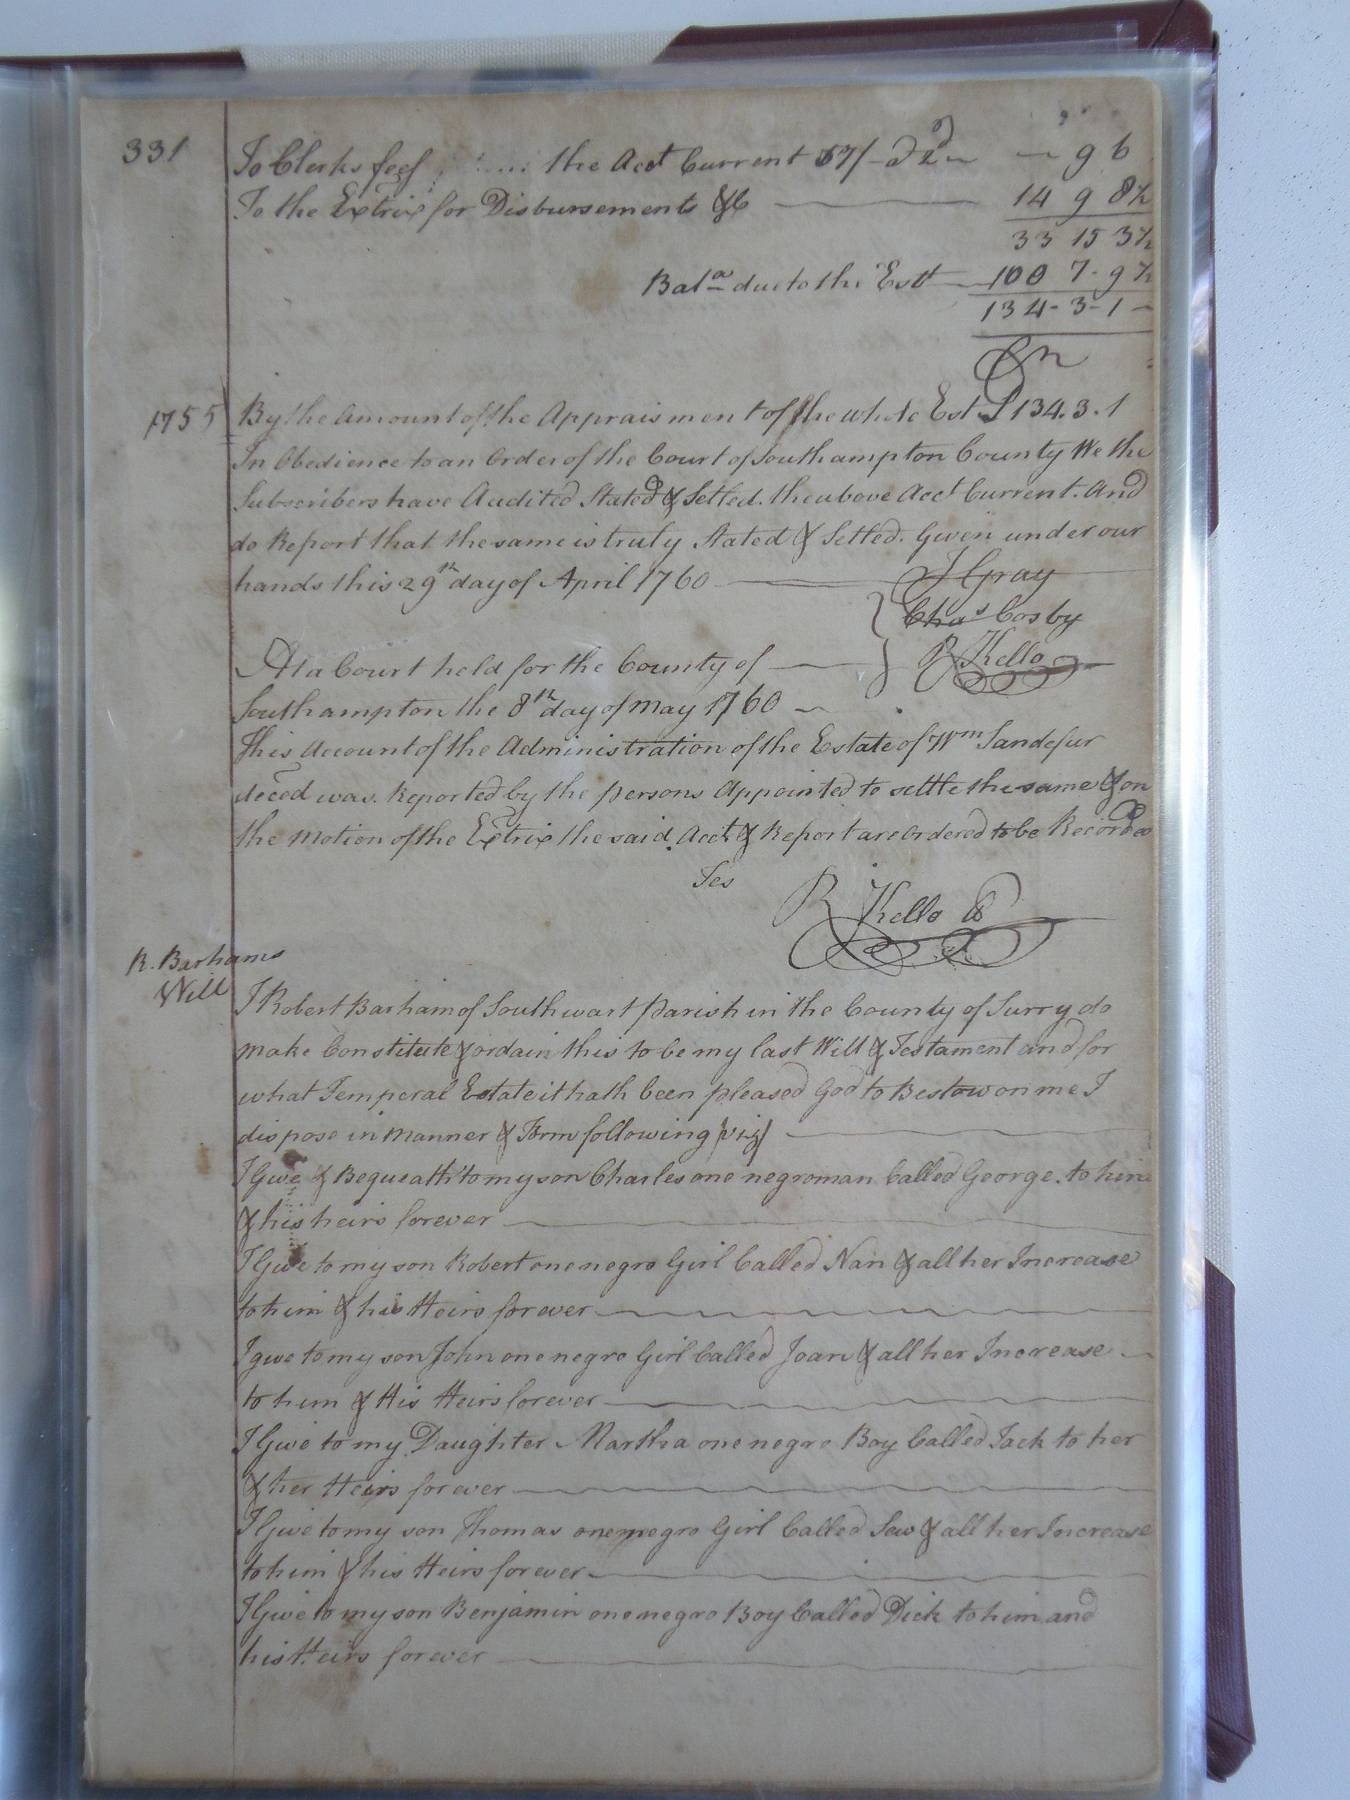 331
To Clerks fees the Acct Current
— 9 6
To the Extrix for Disbursements &c — 14 9 8½
33 15 3½
Bala due to the Estt — 100 7 . 9½
134 - 3 - 1 —
1755 By the Amount of the Appraisment of the whole Est £134.3.1
In Obedience to an Order of the Court of Southampton County We the
Subscribers have Audited Stated & Setled. the above Acct Current. And
do Report that the same is truly Stated & Setled. Given under our
hands this 29th day of April 1760 — J Gray
Chas Cosby
At a Court held for the County of — R Kello
Southampton the 8th day of May 1760 —
This Account of the Administration of the Estate of Wm Sandefur
deced was. Reported by the persons Appointed to settle the same & on
the Motion of the Extrix the said. Acct & Report are Ordered to be Recorded
Tes
R Kello
R. Barhams
Will
I Robert Barham of Southwart parish in the County of Surry do
make Constitute & ordain this to be my last Will & Testament and for
what Temperal Estate it hath been pleased God to Bestow on me I
dispose in Manner & Form following (viz) —
I Give & Bequeath to my son Charles one negro man Called George. to him
& his heirs forever —
I Give to my son Robert one negro Girl Called Nan & all her Increase
to him & his Heirs forever —
I give to my son John one negro Girl Called Joan & all her Increase —
to him & His Heirs forever —
I Give to my Daughter Martha one negro Boy Called Jack to her
& her Heirs forever —
I Give to my son Thomas one negro Girl Called Sew & all her Increase
to him & his Heirs forever —
I Give to my son Benjamin one negro Boy Called Dick to him and
his Heirs forever —